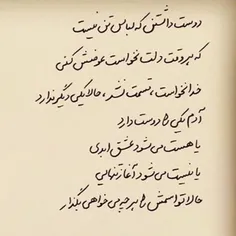 دوست داشتن که لباس تن نیست
که هر وقت دلت نخواست عوضش کنی
خدا نخواست، قسمت نشد، حالا یکی دیگر ندارد
آدم یکی را دوست دارد
یا هست می‌شود عشق ابدی
یا نیست می‌شود آغاز تنهایی
حالا تو اسمش را هر چه می‌خواهی بگذار